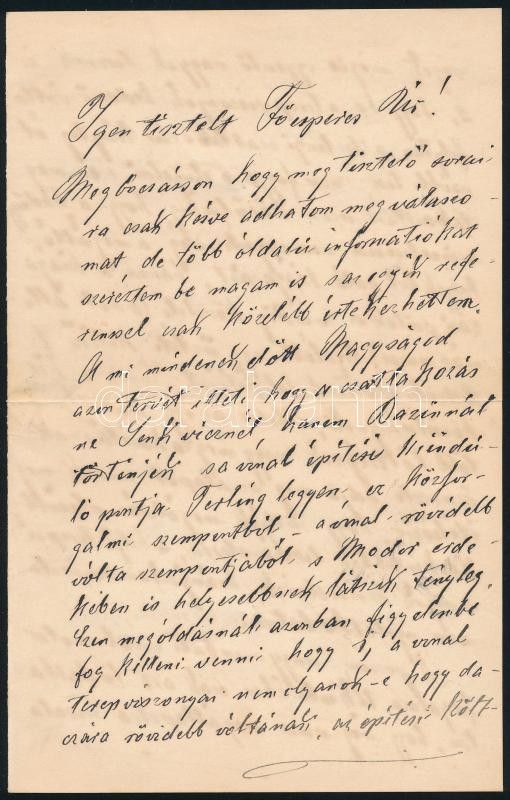 Igen tisztelt Főesperes Úr!
Megbocsásson hogy megtisztelő sorai-
ra csak késve adhatom meg válaszo-
mat de több oldalú informatiókat
szereztem be magam is s az egyik refe-
renssel csak később értekezhettem.
A mi mindenek előtt Nagyságod
azon tervét illeti, hogy a csatlakozás
ne Senkvicznél, hanem Bazinnál
történjék s a vonal építési kiindu-
ló pontja Terling legyen, ez közfor-
galmi szempontból - a vonal rövidebb
volta szempontjából, s Modor érde-
kében is helyesebbnek látszik tényleg.
Ezen megoldásnál azonban figyelembe
fog kelleni venni hogy 1, a vonal
terepviszonyai nem olyanok-e hogy da-
czára rövidebb voltának, az építési költ-
darabanth.com